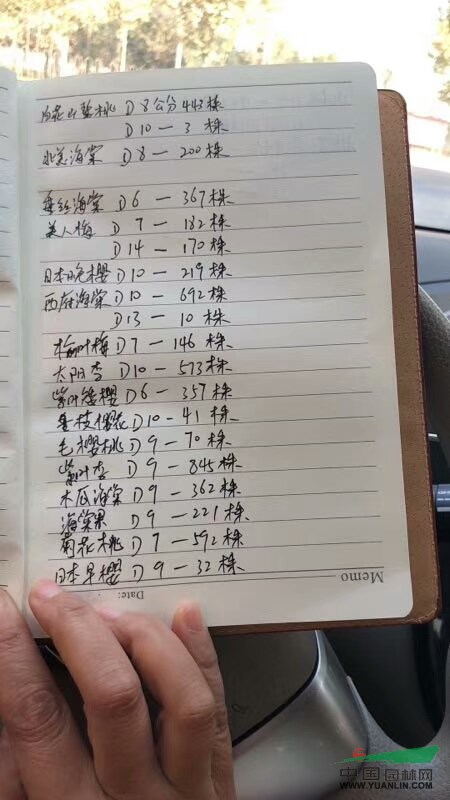 白花山碧桃 D8公分 443株
D10-3株
北美海棠 D8-200株
垂丝海棠 D6-367株
美人梅 D7-182株
D14-170株
日本晚樱 D10-219株
西府海棠 D10-692株
D13-10株
榆叶梅 D7-146株
太阳李 D10-573株
紫叶矮樱 D6-357株
垂枝樱花 D10-41株
毛樱桃 D9-70株
紫叶李 D9-845株
木瓜海棠 D9-362株
海棠果 D9-221株
菊花桃 D7-592株
日本早樱 D9-32株
Memo
Date:
中国园林网
WWW.YUANLIN.COM